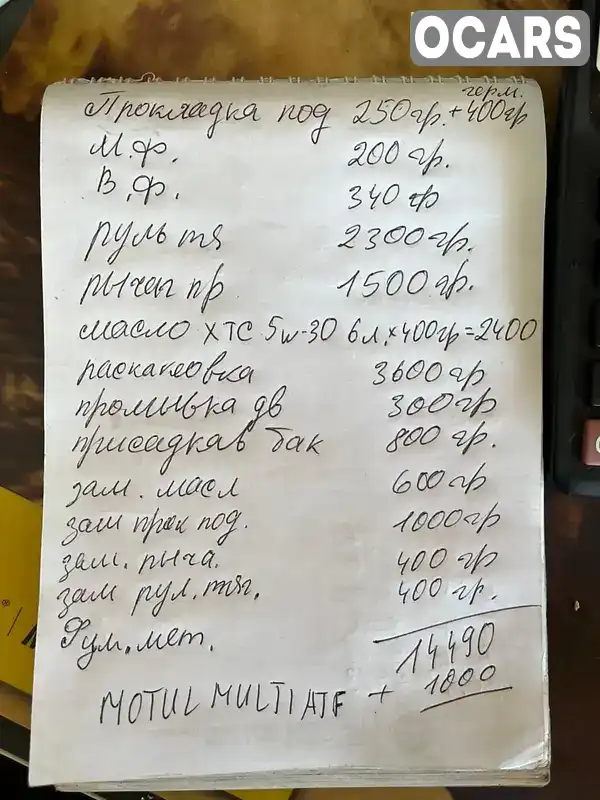 OCARS
герм.
Прокладка под 250гр.+400гр
М.ф. 200гр.
В.ф. 340гр
руль тя 2300гр.
рычаг пр 1500гр.
масло XTC 5w-30 6л.×400гр=2400
раскаксовка 3600гр
промывка дв 300гр
присадка в бак 800гр.
зам. масл 600гр
зам прок под. 1000гр
зам. рыча. 400гр
зам рул. тяг. 400гр.
14490
мет.
MOTUL MULTI ATF + 1000